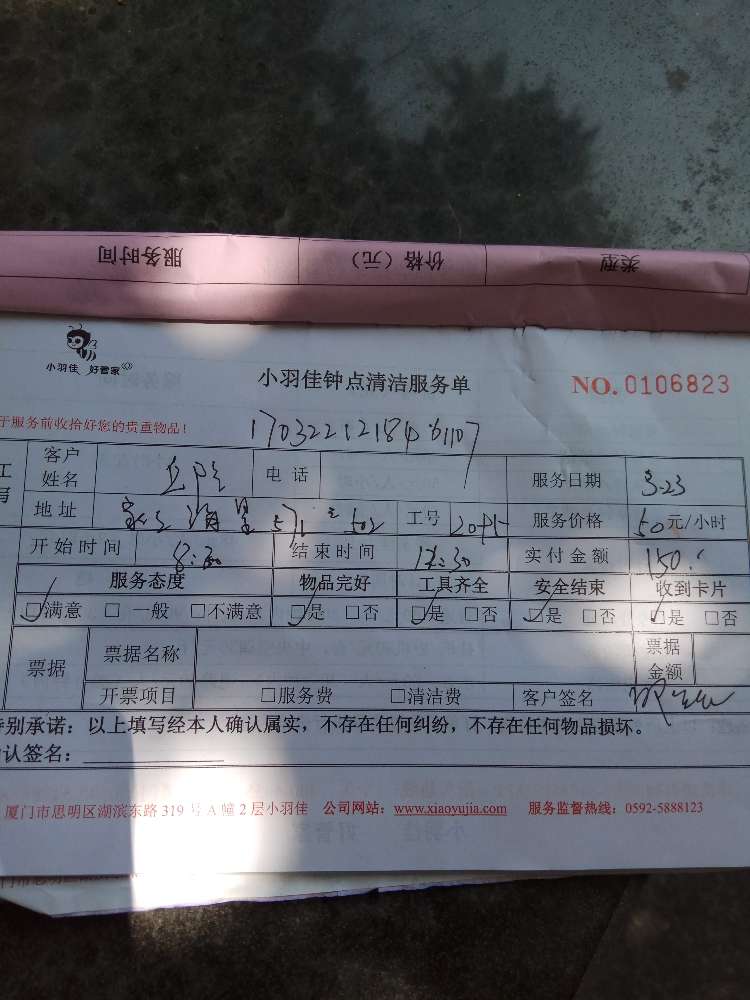 服务时间 价格（元） 类型
小羽佳 好管家
小羽佳钟点清洁服务单 NO. 0106823
于服务前收拾好您的贵重物品！
客户姓名 电话 服务日期 3-23
地址 502 工号 服务价格 50元/小时
开始时间 8:30 结束时间 实付金额 150
服务态度 物品完好 工具齐全 安全结束 收到卡片
☑满意 □一般 □不满意 ☑是 □否 ☑是 □否 ☑是 □否 ☑是 □否
票据 票据名称 票据金额
开票项目 □服务费 □清洁费 客户签名
特别承诺：以上填写经本人确认属实，不存在任何纠纷，不存在任何物品损坏。
认签名：
厦门市思明区湖滨东路 319 号 A 幢 2 层小羽佳 公司网站：www.xiaoyujia.com 服务监督热线：0592-5888123